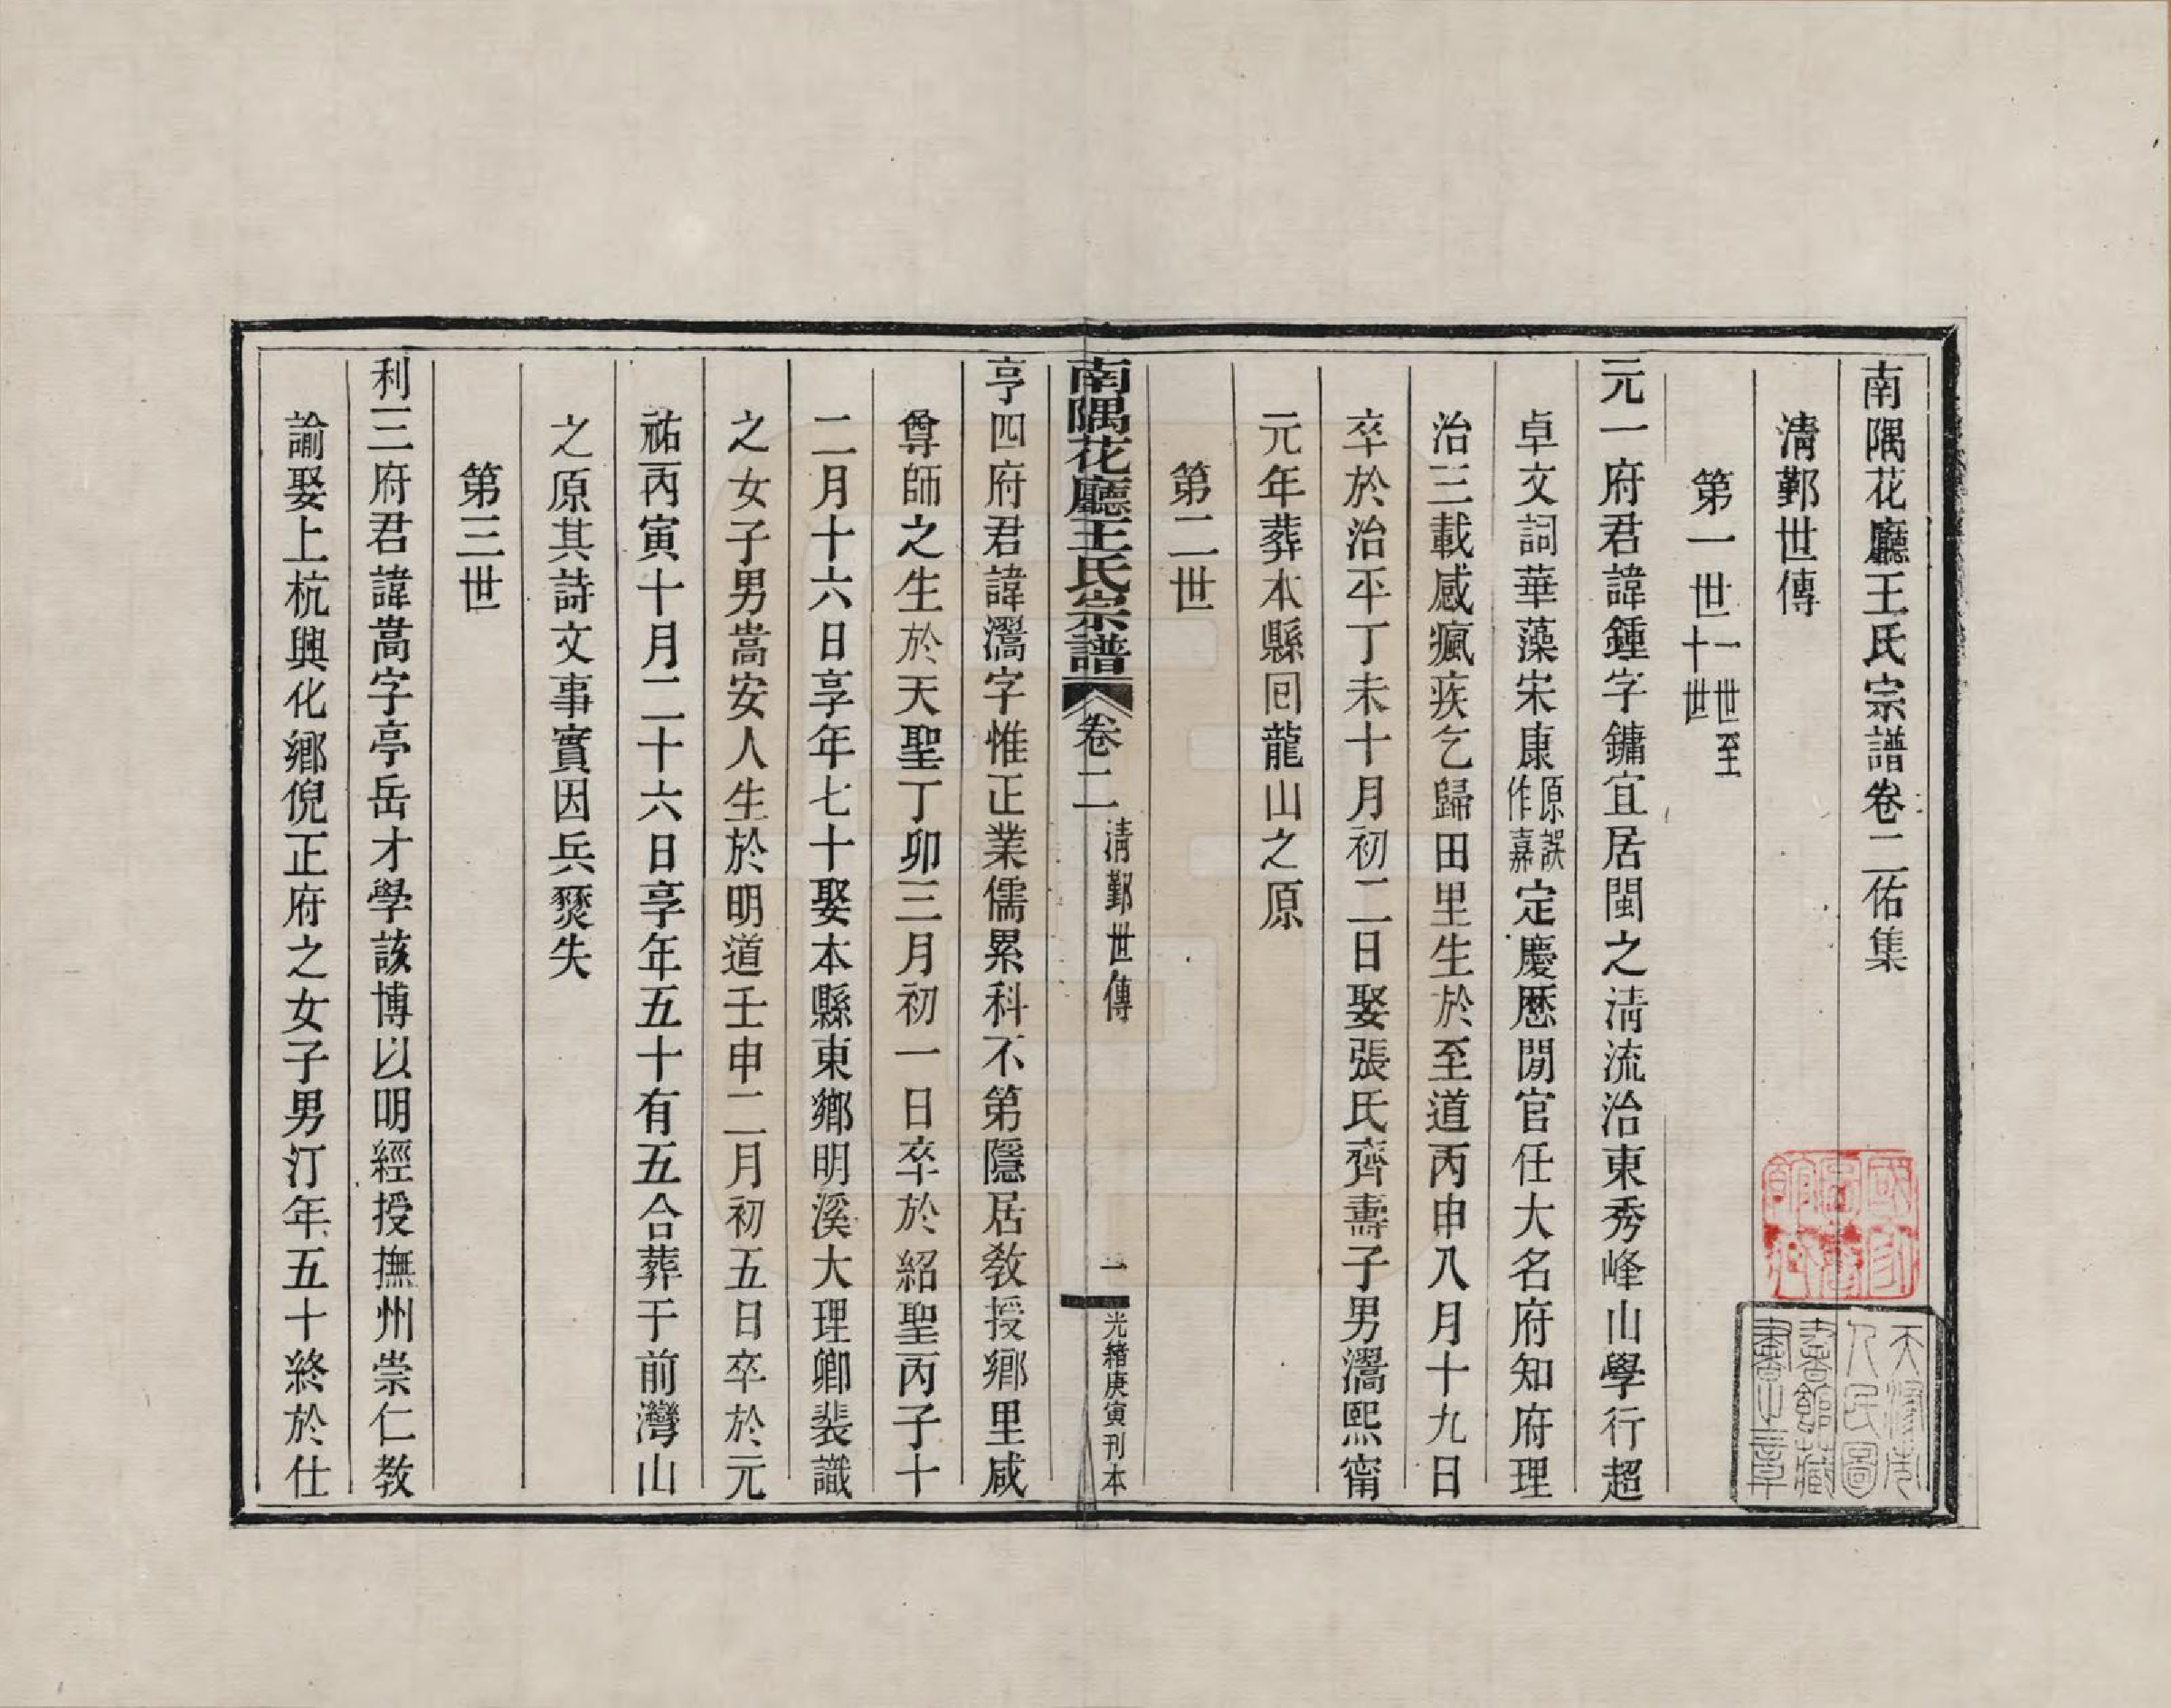 南隅花廳王氏宗譜卷二佑集
清鄞世傳
第一世一世至十世
元一府君諱鍾字鏞宜居閩之清流治東秀峰山學行超
卓文詞華藻宋康原誤作嘉定慶歷閒官任大名府知府理
治三載感瘋疾乞歸田里生於至道丙申八月十九日
卒於治平丁未十月初二日娶張氏齊壽子男濿熙甯
元年葬本縣回龍山之原
第二世
南隅花廳王氏宗譜
卷二
清鄞世傳
一
光緒庚寅刊本
亨四府君諱濿字惟正業儒累科不第隱居敎授鄉里咸
尊師之生於天聖丁卯三月初一日卒於紹聖丙子十
二月十六日享年七十娶本縣東鄉明溪大理卿裴識
之女子男嵩安人生於明道壬申二月初五日卒於元
祐丙寅十月二十六日享年五十有五合葬于前灣山
之原其詩文事實因兵燹失
第三世
利三府君諱嵩字亭岳才學該博以明經授撫州崇仁敎
諭娶上杭興化鄉倪正府之女子男汀年五十終於仕
國家圖書館藏
天津市人民圖書館藏書之章